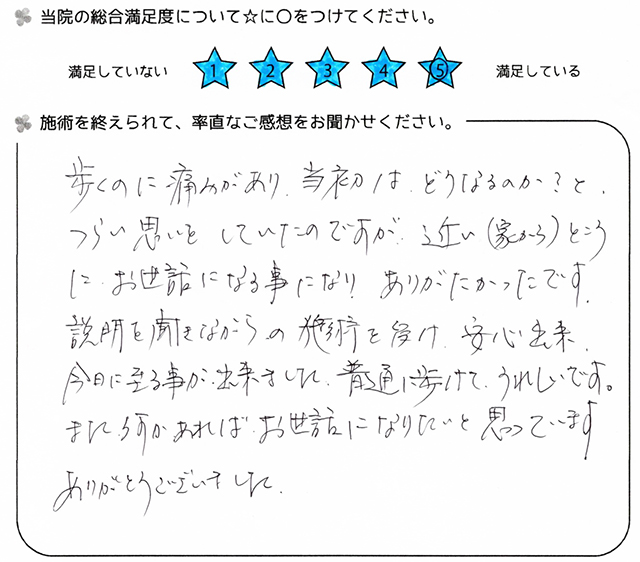 当院の総合満足度について☆に〇をつけてください。
満足していない 1 2 3 4 5 満足している
施術を終えられて、率直なご感想をお聞かせください。
歩くのに痛みがあり、当初は、どうなるのか?と、
つらい思いを していたのですが、近い(家から)ところ
に、お世話になる事になり ありがたかったです。
説明を聞きながらの 施術を受け、安心出来、
今日に至る事が、出来ました。普通に歩けて、うれしいです。
また、何かあれば、お世話になりたいと思っています
ありがとうございました。